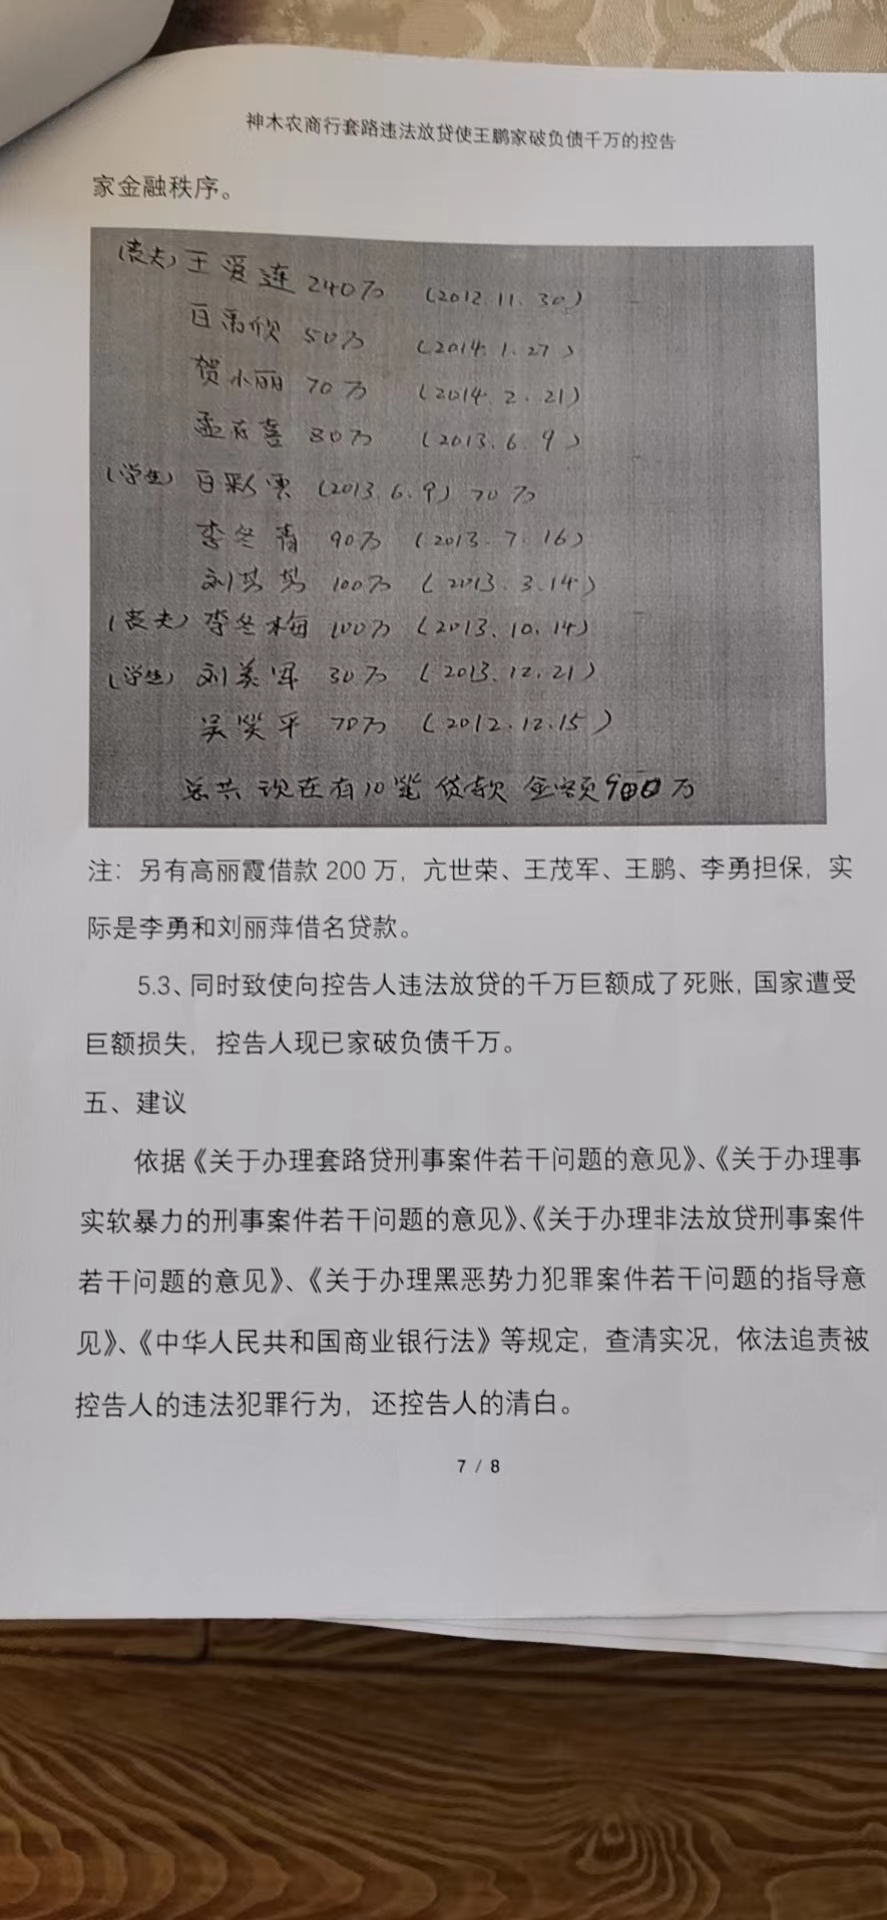 神木农商行套路违法放贷使王鹏家破负债千万的控告
家金融秩序。
(丧夫) 王爱连 240万 (2012.11.30)
白禹欣 50万 (2014.1.27)
贺小丽 70万 (2014.2.21)
孟 喜 80万 (2013.6.9)
(学生) 白彩雲 (2013.6.9) 70万
李冬青 90万 (2013.7.16)
刘 100万 (2013.3.14)
(丧夫) 李冬梅 100万 (2013.10.14)
(学生) 刘美 30万 (2013.12.21)
吴笑平 70万 (2012.12.15)
总共 现在有10笔 贷款 金额900万
注：另有高丽霞借款 200 万，亢世荣、王茂军、王鹏、李勇担保，实
际是李勇和刘丽萍借名贷款。
5.3、同时致使向控告人违法放贷的千万巨额成了死账，国家遭受
巨额损失，控告人现已家破负债千万。
五、建议
依据《关于办理套路贷刑事案件若干问题的意见》、《关于办理事
实软暴力的刑事案件若干问题的意见》、《关于办理非法放贷刑事案件
若干问题的意见》、《关于办理黑恶势力犯罪案件若干问题的指导意
见》、《中华人民共和国商业银行法》等规定，查清实况，依法追责被
控告人的违法犯罪行为，还控告人的清白。
7 / 8